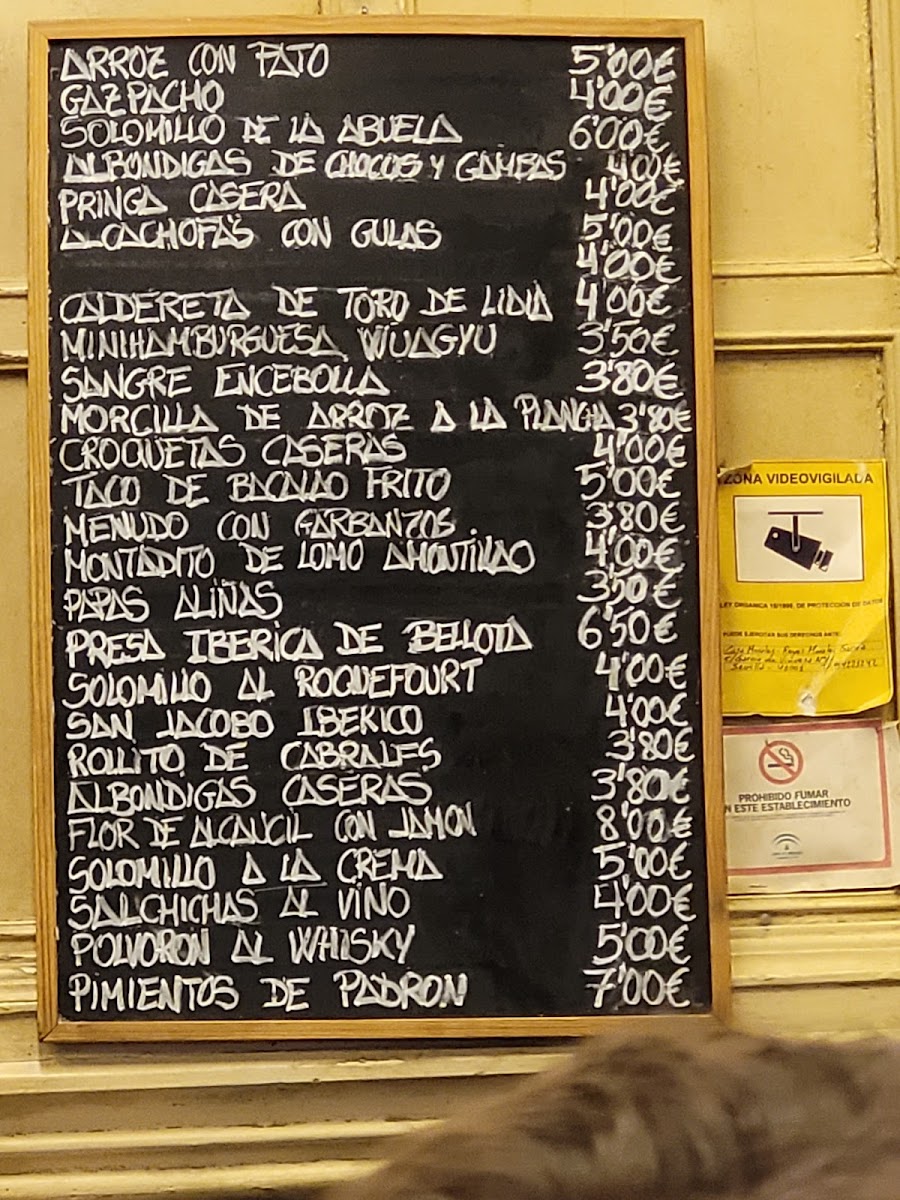 ARROZ CON PATO 5'00€
GAZPACHO 4'00€
SOLOMILLO DE LA ABUELA 6'00€
ALBONDIGAS DE CHOCOS Y GAMBAS 4'00€
PRINGA CASERA 4'00€
ALCACHOFAS CON GULAS 5'00€
4'00€
CALDERETA DE TORO DE LIDIA 4'00€
MINIHAMBURGUESA WUAGYU 3'50€
SANGRE ENCEBOLLA 3'80€
MORCILLA DE ARROZ A LA PLANCHA 3'80€
CROQUETAS CASERAS 4'00€
TACO DE BACALAO FRITO 5'00€
MENUDO CON GARBANZOS. 3'80€
MONTADITO DE LOMO AMONTILLAO 4'00€
PAPAS ALIÑAS 3'50€
PRESA IBERICA DE BELLOTA 6'50€
SOLOMILLO AL ROQUEFOURT 4'00€
SAN JACOBO IBERICO 4'00€
ROLLITO DE CABRALES 3'80€
ALBONDIGAS CASERAS 3'80€
FLOR DE ALCAUCIL CON JAMON 8'00€
SOLOMILLO A LA CREMA 5'00€
SALCHICHAS AL VINO 4'00€
POLVORON AL WHISKY 5'00€
PIMIENTOS DE PADRON 7'00€
ZONA VIDEOVIGILADA
LEY ORGANICA 15/1999, DE PROTECCION DE DATOS
PUEDE EJERCITAR SUS DERECHOS ANTE:
PROHIBIDO FUMAR
EN ESTE ESTABLECIMIENTO